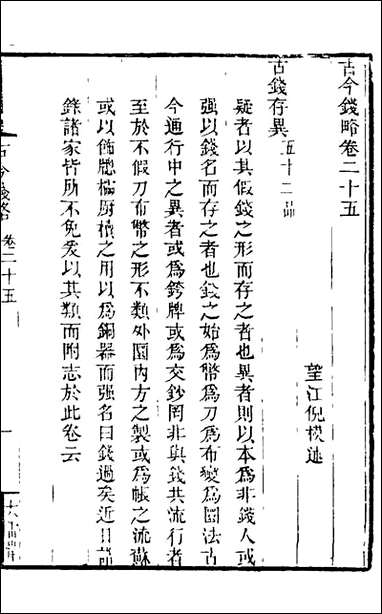 古今錢略卷二十五
望江倪模述
古錢存異五十二品
疑者以其假錢之形而存之者也異者則以本爲非錢人或
强以錢名而存之者也錢之始爲幣爲刀爲布變爲圜法古
今通行中之異者或爲鈐牌或爲交鈔罔非與錢共流行者
至於不假刀布幣之形不類外圜内方之製或爲帳之流蘇
或以飾牕櫺廚櫝之用以爲銅器而强名曰錢過矣近日諸
錄諸家皆所不免爰以其類而附志於此卷云
古今錢略
卷二十五
一